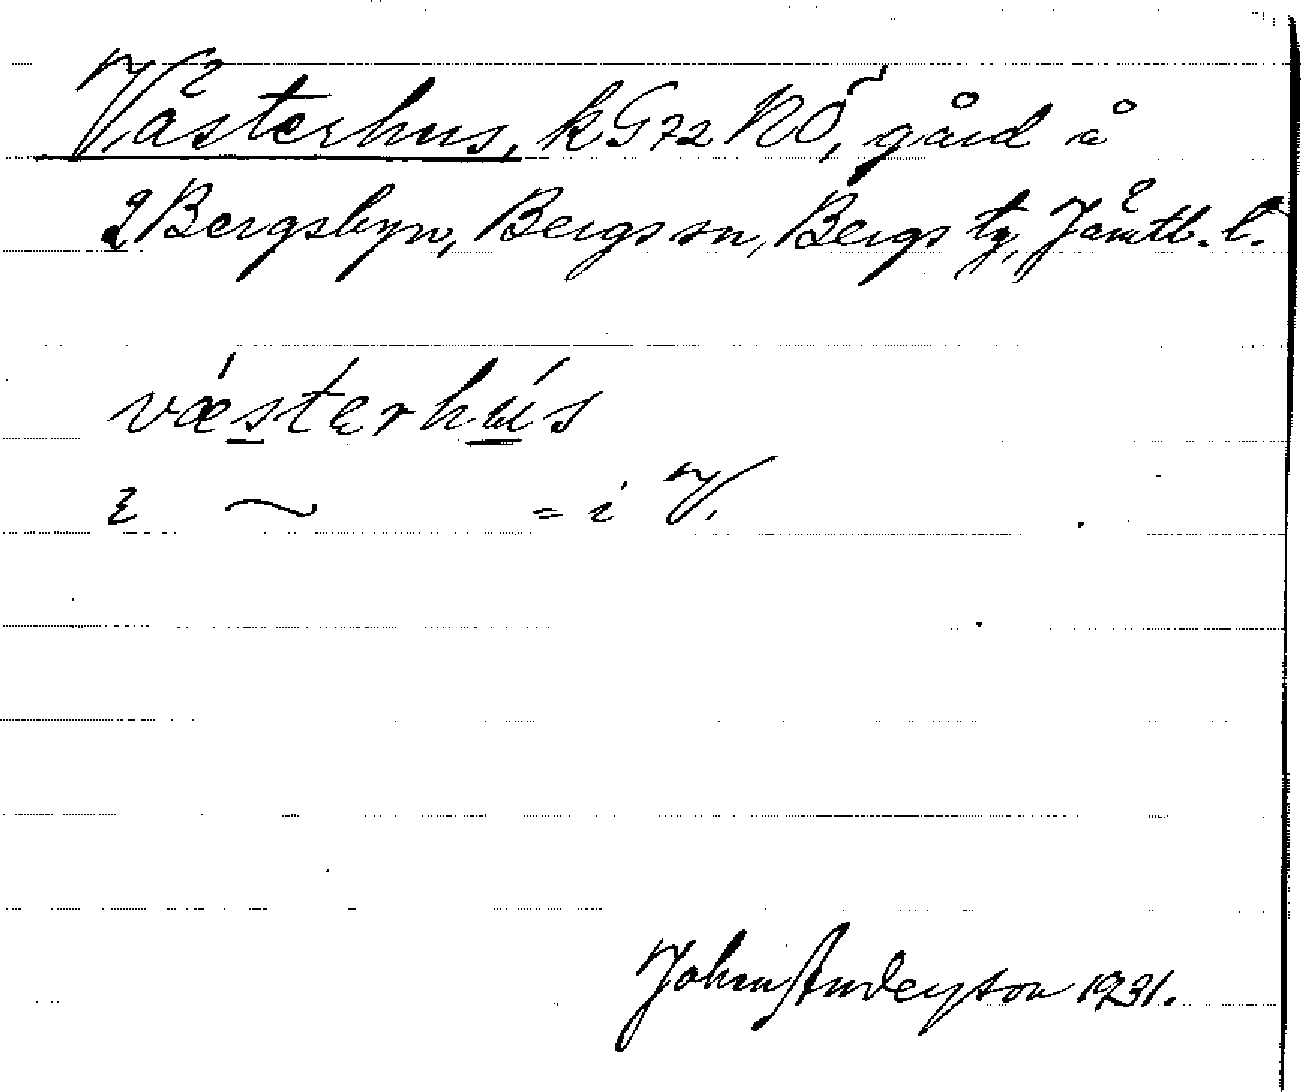 Västerhus, kG72 NÖ, gård å
2 Bergsbyn, Bergs sn, Bergs tg, Jämtl. l.
vǽstərhús
ɛ ~ = i V.
Johan Anderson 1931.